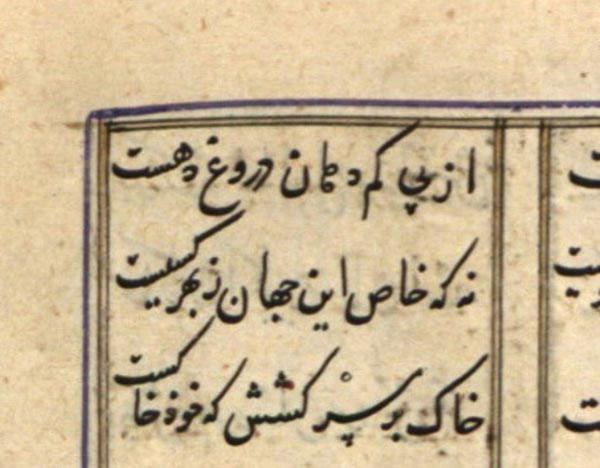 از پی کم دهان دروغ دهست
نه که خاص این جهان ز بهر کسیست
خاک بر سرش کشش که خود خاکست